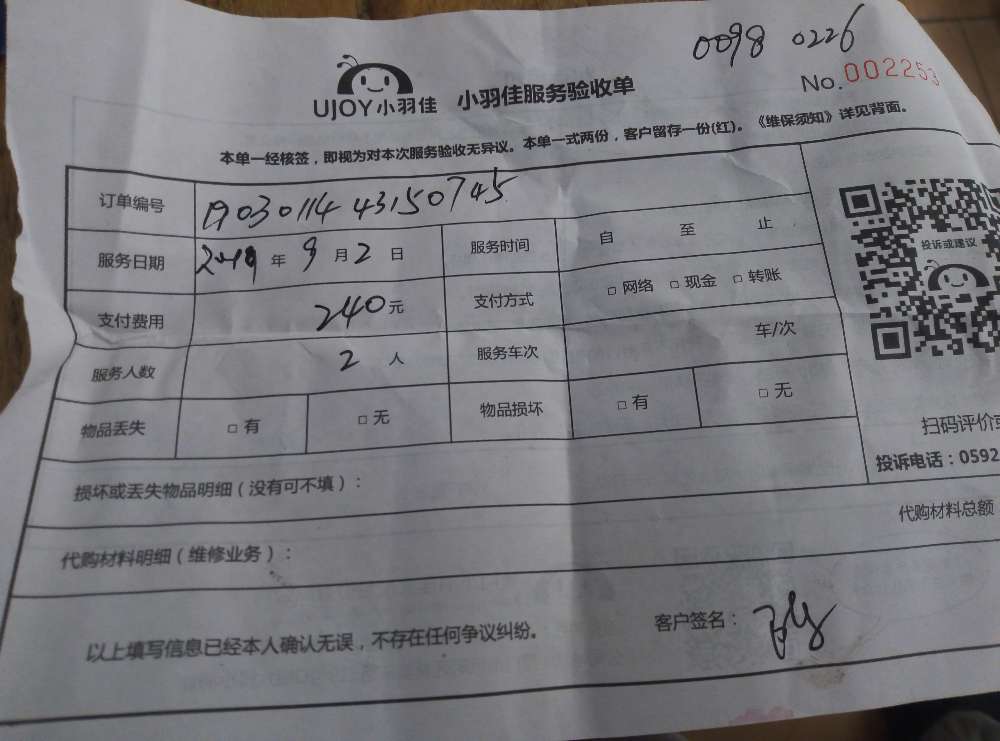 0098 0226
No.002253
UJOY小羽佳 小羽佳服务验收单
本单一经核签，即视为对本次服务验收无异议。本单一式两份，客户留存一份(红)。《维保须知》详见背面。
订单编号 1903011443150745
服务日期 2019年9月2日 服务时间 自 至 止
支付费用 240元 支付方式 □网络 □现金 □转账
服务人数 2人 服务车次 车/次
物品丢失 □有 □无 物品损坏 □有 □无
投诉或建议
扫码评价或
投诉电话：0592
损坏或丢失物品明细（没有可不填）：
代购材料明细（维修业务）： 代购材料总额
以上填写信息已经本人确认无误，不存在任何争议纠纷。 客户签名：